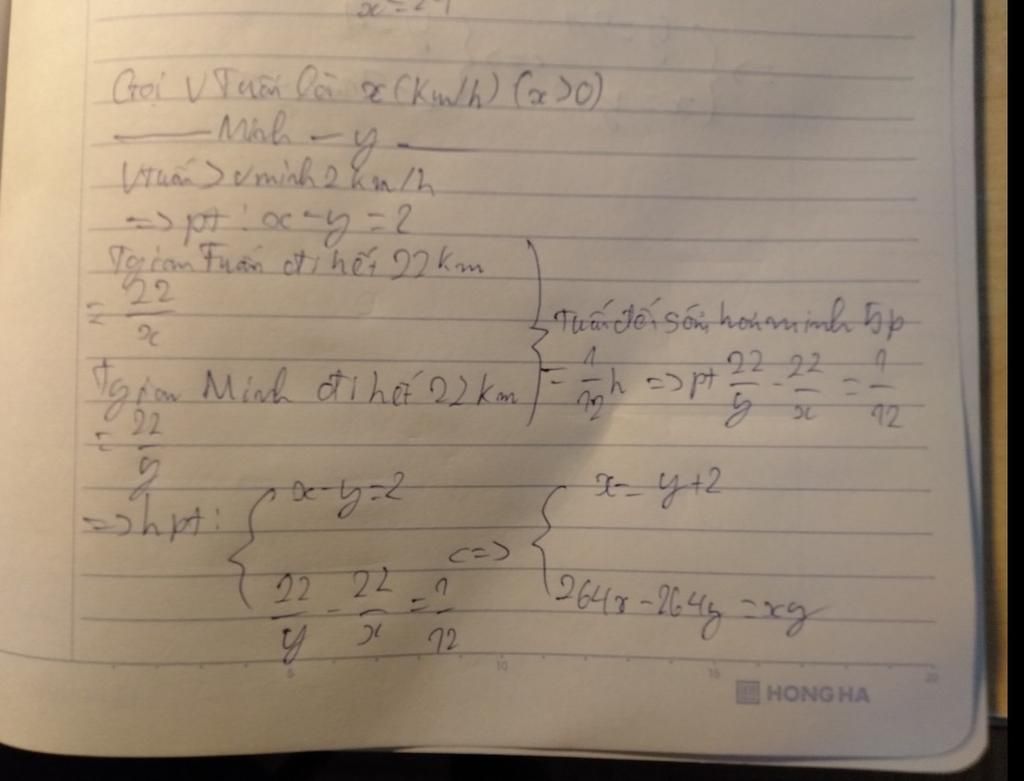 x=24
Gọi V Tuấn là x (km/h) (x>0)
—— Minh — y ——
V Tuấn > v minh 2 km/h
=> pt: x - y = 2
Tgian Tuấn đi hết 22 km
= 22/x
Tgian Minh đi hết 22 km
= 22/y
Tuấn đến sớm hơn minh 5p
= 1/12 h => pt 22/y - 22/x = 1/12
=> hpt: { x - y = 2
22/y - 22/x = 1/12
<=> { x = y + 2
264x - 264y = xy
5 10 15 20
HONG HA